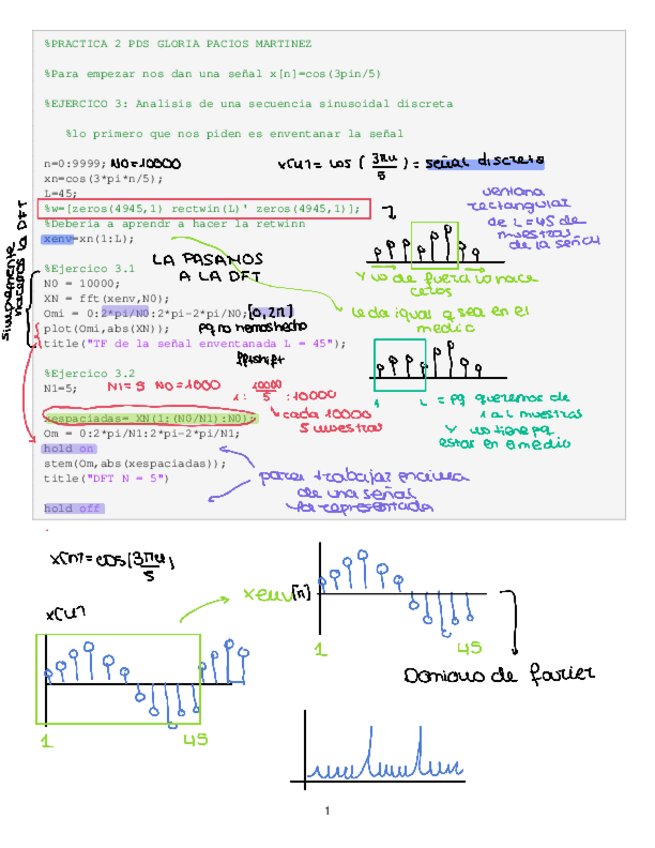 %PRACTICA 2 PDS GLORIA PACIOS MARTINEZ
%Para empezar nos dan una señal x[n]=cos(3pin/5)
%EJERCICO 3: Analisis de una secuencia sinusoidal discreta
%lo primero que nos piden es enventanar la señal
n=0:9999; N0=10000
x[n]=cos(3πn/5)= señal discreta
xn=cos(3*pi*n/5);
L=45;
%w=[zeros(4945,1) rectwin(L)' zeros(4945,1)];
ventana
rectangular
de L=45 de
muestras
de la señal
%Deberia a aprendr a hacer la retwinn
xenv=xn(1:L);
LA PASAMOS
A LA DFT
y lo de fuera lo hace
ceros
simplemente
hacemos la DFT
%Ejercico 3.1
N0 = 10000;
XN = fft(xenv,N0);
Omi = 0:2*pi/N0:2*pi-2*pi/N0; [0,2π]
le da igual q sea en el
medio
plot(Omi,abs(XN)); pq no hemos hecho
title("TF de la señal enventanada L = 45");
fftshift
%Ejercico 3.2
N1=5; N1=5 N0=1000 1: 10000/5 :10000
1 L = pq queremos de
1 a L muestras
y no tiene pq
estar en a medio
xespaciadas= XN(1:(N0/N1):N0);
cada 10000
5 muestras
Om = 0:2*pi/N1:2*pi-2*pi/N1;
hold on
stem(Om,abs(xespaciadas));
title("DFT N = 5")
para trabajar encima
de una señal
ya representada
hold off
x[n]=cos(3πn/5)
x[n]
xenv[n]
1 45
Dominio de fourier
1 45
1